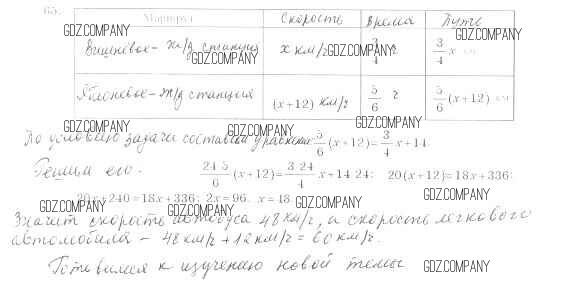 65.
Маршрут Скорость Время Путь
GDZ.COMPANY GDZ.COMPANY
Вишневое - ж/д станция x км/ч 3/4 ч 3/4 x км
GDZ.COMPANY GDZ.COMPANY
Яблоневое - ж/д станция (x+12) км/ч 5/6 ч 5/6 (x+12) км
GDZ.COMPANY GDZ.COMPANY GDZ.COMPANY
По условию задачи составим уравнение: 5/6 (x+12) = 3/4 x + 14.
Решим его. 24·5/6 (x+12) = 3·24/4 x + 14·24; 20(x+12) = 18x + 336;
GDZ.COMPANY
20x + 240 = 18x + 336; 2x = 96. x = 48
GDZ.COMPANY GDZ.COMPANY GDZ.COMPANY
Значит скорость автобуса 48 км/ч, а скорость легкового
автомобиля - 48 км/ч + 12 км/ч = 60 км/ч.
Готовимся к изучению новой темы
GDZ.COMPANY